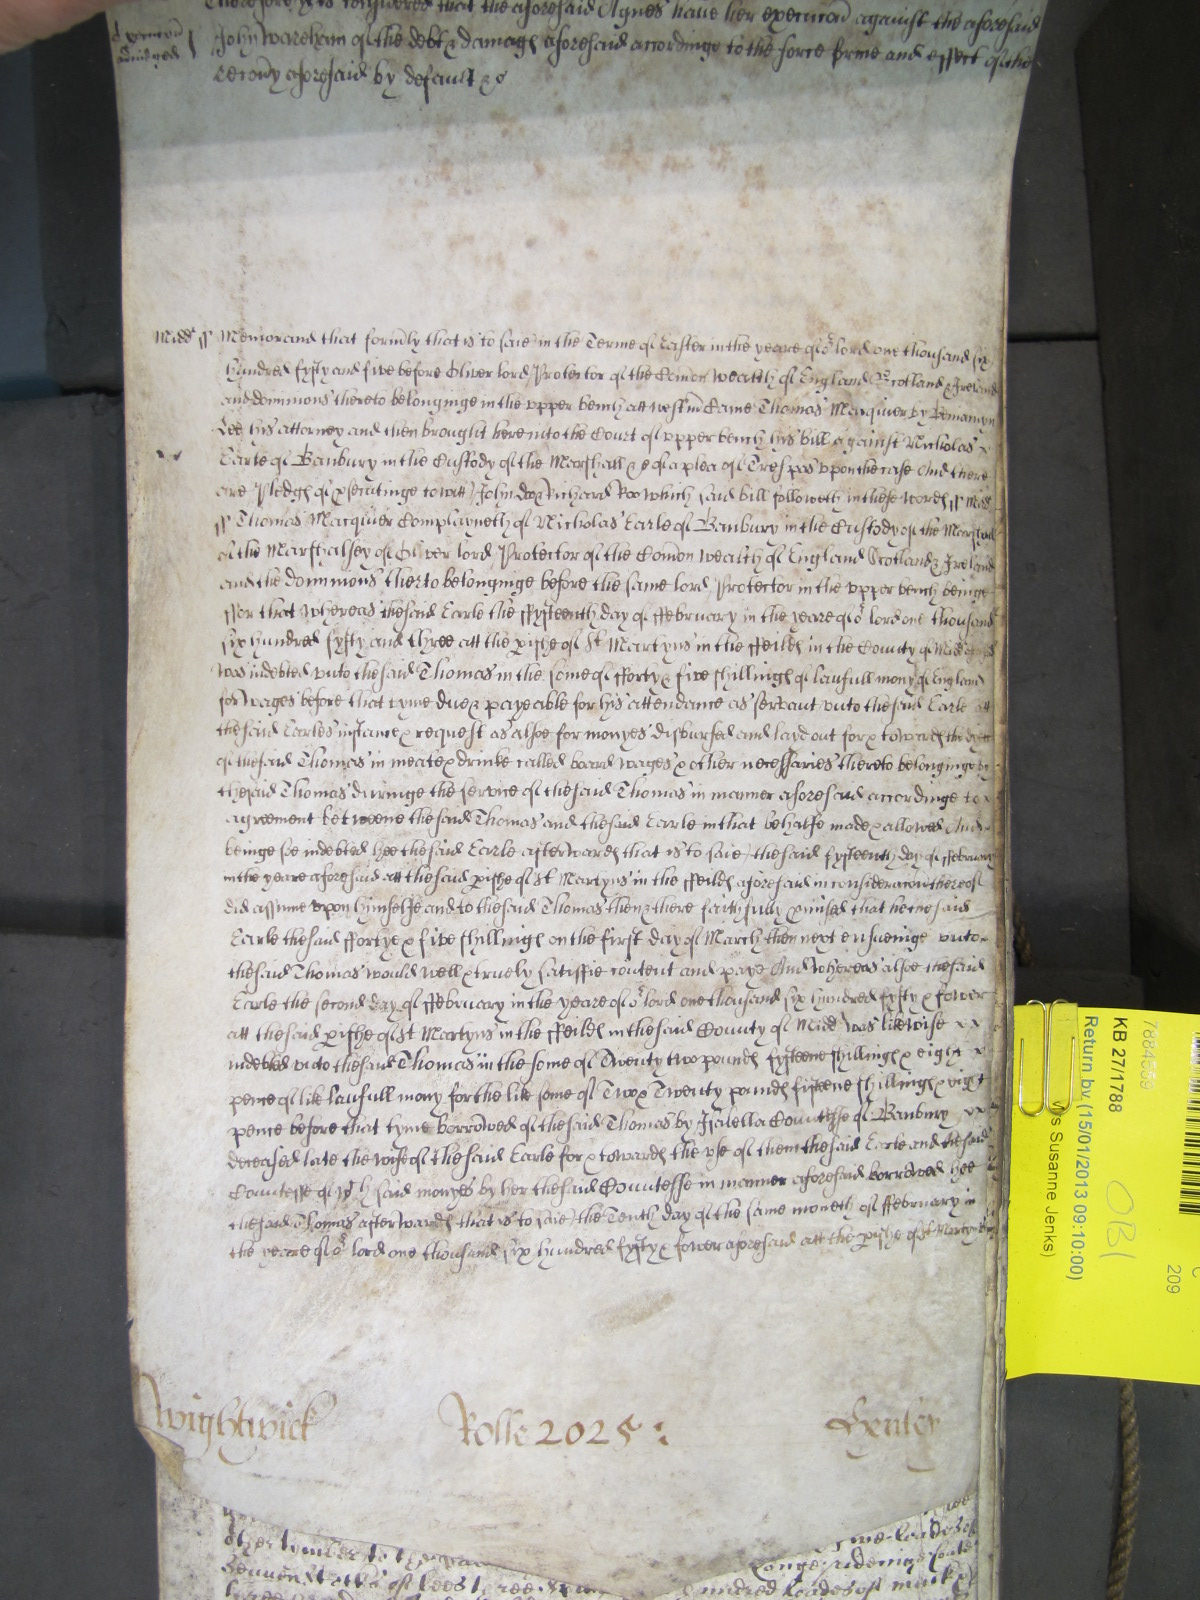 Therefore yt is considered that the aforesaid Agnes have her execucon against the aforesaid
John Wareham of the debt & damage aforesaid accordinge to the force forme and effect of the
recovy aforesaid by default &c
Midds ss Memorand that formly that is to saie in the Terme of Easter in the yeare of or lord one thousand six
hundred fyfty and five before Oliver lord Protector of the Comon wealth of England Scotland & Ireland
and dominions thereto belonginge in the upper bench att westmr Came Thomas Macquier by Beniamyn
Lee his attorney and then brought here into the Court of upper bench his bill against Nicholas
Earle of Banbury in the Custody of the Marshall &c of a plea of Trespas upon the case And there
are Pledges of psecutinge to witt John doo & Richard Roo which said bill followeth in these words ss Midd
ss Thomas Macquier Complayneth of Nicholas Earle of Banbury in the Custody of the Marshall
of the Marshalsey of Oliver lord Protector of the Comon wealth of England Scotland & Ireland
and the dominions therto belonginge before the same lord Protector in the upper bench beinge
ffor that whereas the said Earle the ffyfteenth day of ffebruary in the yeare of or lord one thousand
six hundred fyfty and three att the pishe of St Martyns in the ffeilds in the County of Midd
was indebted unto the said Thomas in the some of fforty & five shillings of lawfull mony of England
for wages before that tyme due & payeable for his attendance as servant unto the said Earle att
the said Earles instance & request as alsoe for monyes disbursed and layd out for & towards the
of the said Thomas in meate & drinke called board wages & other necessaries thereto belonginge by
the said Thomas duringe the service of the said Thomas in manner aforesaid accordinge to
agreement betweene the said Thomas and the said Earle in that behalfe made & allowed And
beinge soe indebted hee the said Earle afterwards that is to saie the said fyfteenth day of ffebruary
in the yeare aforesaid att the said pishe of St Martyns in the ffeilds aforesaid in consideracon thereof
did assume upon himselfe and to the said Thomas then & there faithfully pmised that he the said
Earle the said ffortye & five shillings on the first day of March then next ensueinge unto
the said Thomas would well & truely satisfie content and paye And whereas alsoe the said
Earle the second day of ffebruary in the yeare of or lord one thousand six hundred fyfty & fower
att the said pishe of St Martyns in the ffeilds in the said County of Midd was likewise
indebted unto the said Thomas in the some of Twenty two pounds fyfteene shillings & eight
pence of like lawfull mony for the like some of Two & Twenty pounds fifteene shillings & eight
pence before that tyme borrowed of the said Thomas by Isabella Countesse of Banbury
deceased late the wife of the said Earle for & towards the use of them the said Earle and the said
Countesse of wch said monyes by her the said Countesse in manner aforesaid borrowed hee
the said Thomas afterwards that is to saie the Tenth day of the same moneth of ffebruary in
the yeare of or lord one thousand six hundred fyfty & fower aforesaid att the pishe of St Martyns
Wightwick
Rolle 2025
other tymber to the
hundred loades of
7884559
KB 27/1788
Return by (15/01/2013 09:10:00)
Susanne Jenks)
OBI
209